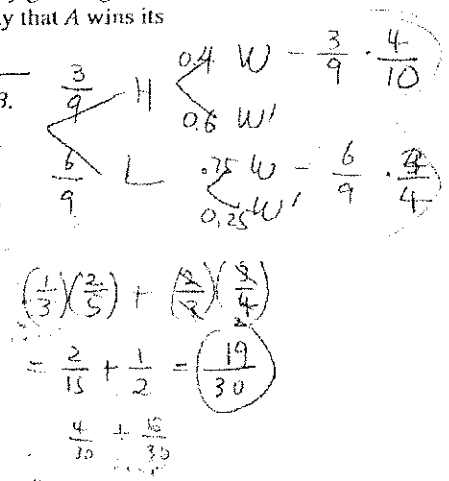 y that A wins its
3/9 H 0.4 W - 3/9 · 4/10
0.6 W'
6/9 L .75 W - 6/9 · 3/4
0.25 W'
(1/3)(2/5) + (2/3)(3/4)
= 2/15 + 1/2 = 19/30
4/30 + 15/30